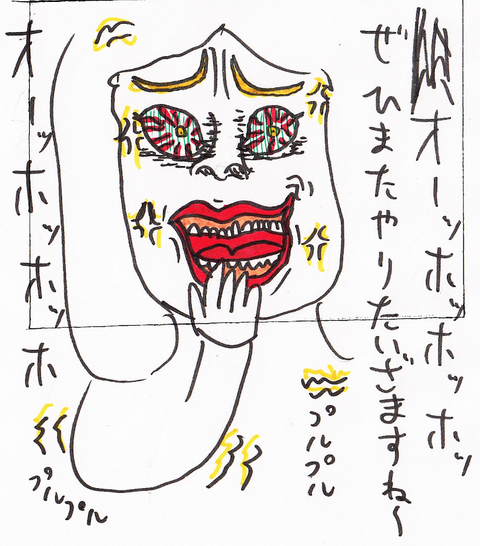 オーッホッホッホッ
ぜひまたやりたいざますね〜
プルプル
プルプル
オーッホッホッホ